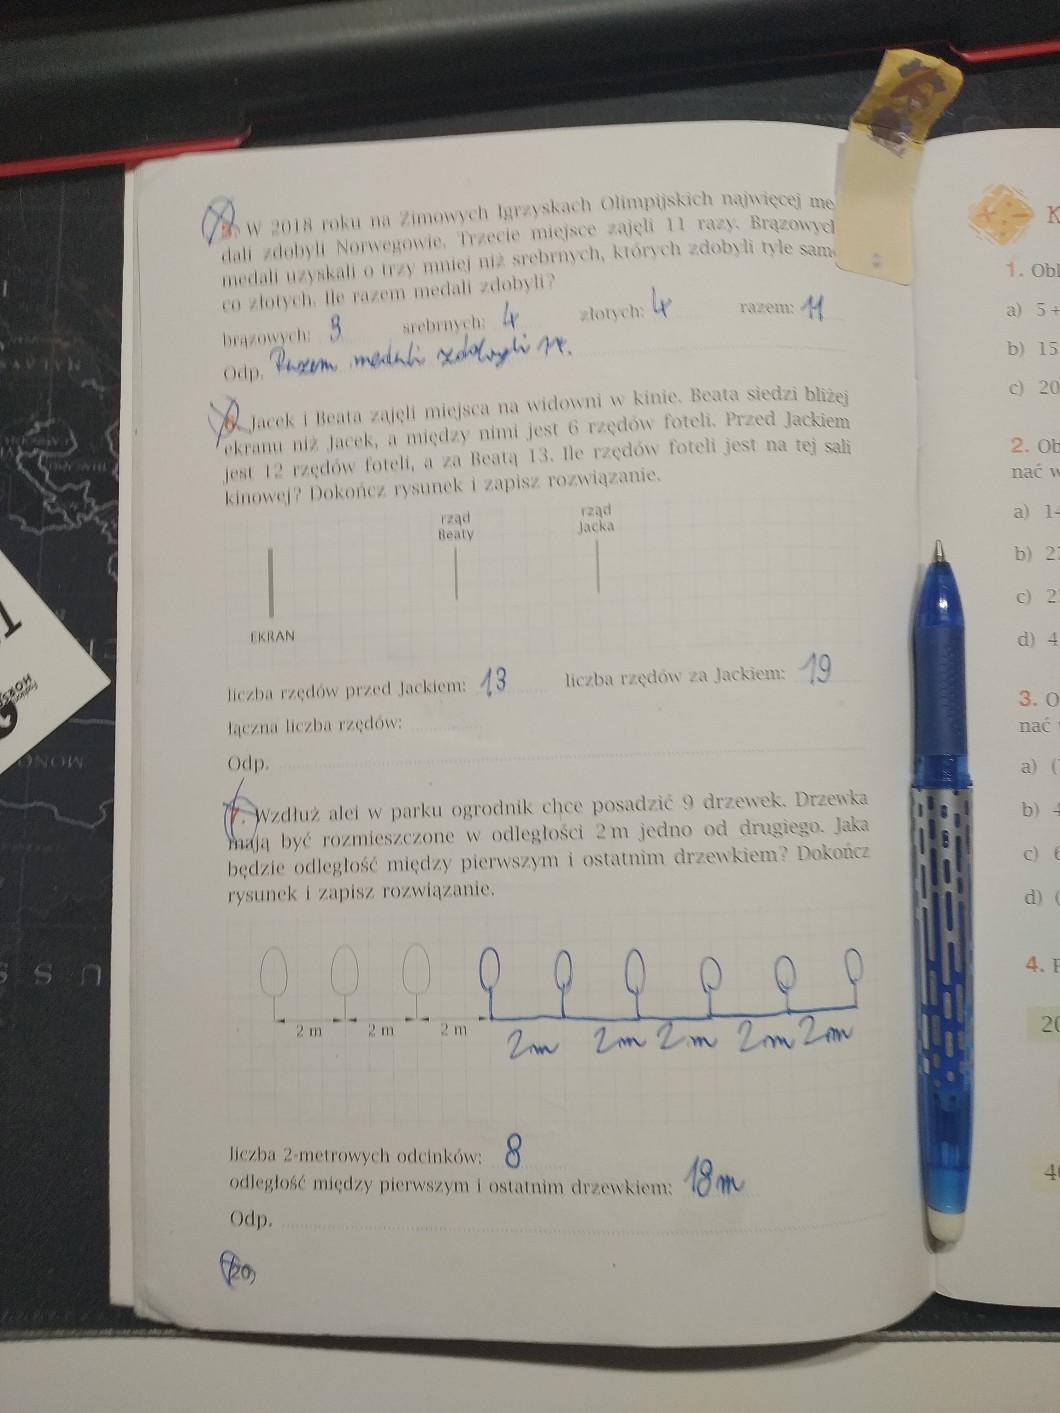 5. W 2018 roku na Zimowych Igrzyskach Olimpijskich najwięcej me
dali zdobyli Norwegowie. Trzecie miejsce zajęli 11 razy. Brązowych
medali uzyskali o trzy mniej niż srebrnych, których zdobyli tyle sam
co złotych. Ile razem medali zdobyli?
brązowych: 3 srebrnych: 4 złotych: 4 razem: 11
Odp. Razem medali zdobyli
6. Jacek i Beata zajęli miejsca na widowni w kinie. Beata siedzi bliżej
ekranu niż Jacek, a między nimi jest 6 rzędów foteli. Przed Jackiem
jest 12 rzędów foteli, a za Beatą 13. Ile rzędów foteli jest na tej sali
kinowej? Dokończ rysunek i zapisz rozwiązanie.
rząd
Beaty
rząd
Jacka
EKRAN
liczba rzędów przed Jackiem: 13 liczba rzędów za Jackiem: 19
łączna liczba rzędów:
Odp.
7. Wzdłuż alei w parku ogrodnik chce posadzić 9 drzewek. Drzewka
mają być rozmieszczone w odległości 2 m jedno od drugiego. Jaka
będzie odległość między pierwszym i ostatnim drzewkiem? Dokończ
rysunek i zapisz rozwiązanie.
2 m 2 m 2 m 2m 2m 2m 2m 2m
liczba 2-metrowych odcinków: 8
odległość między pierwszym i ostatnim drzewkiem: 18m
Odp.
20
K
1. Obl
a) 5+
b) 15
c) 20
2. Ob
nać w
a) 1
b) 2
c) 2
d) 4
3. O
nać
a) (
b) 4
c) 6
d) (
4.
20
40
MONO